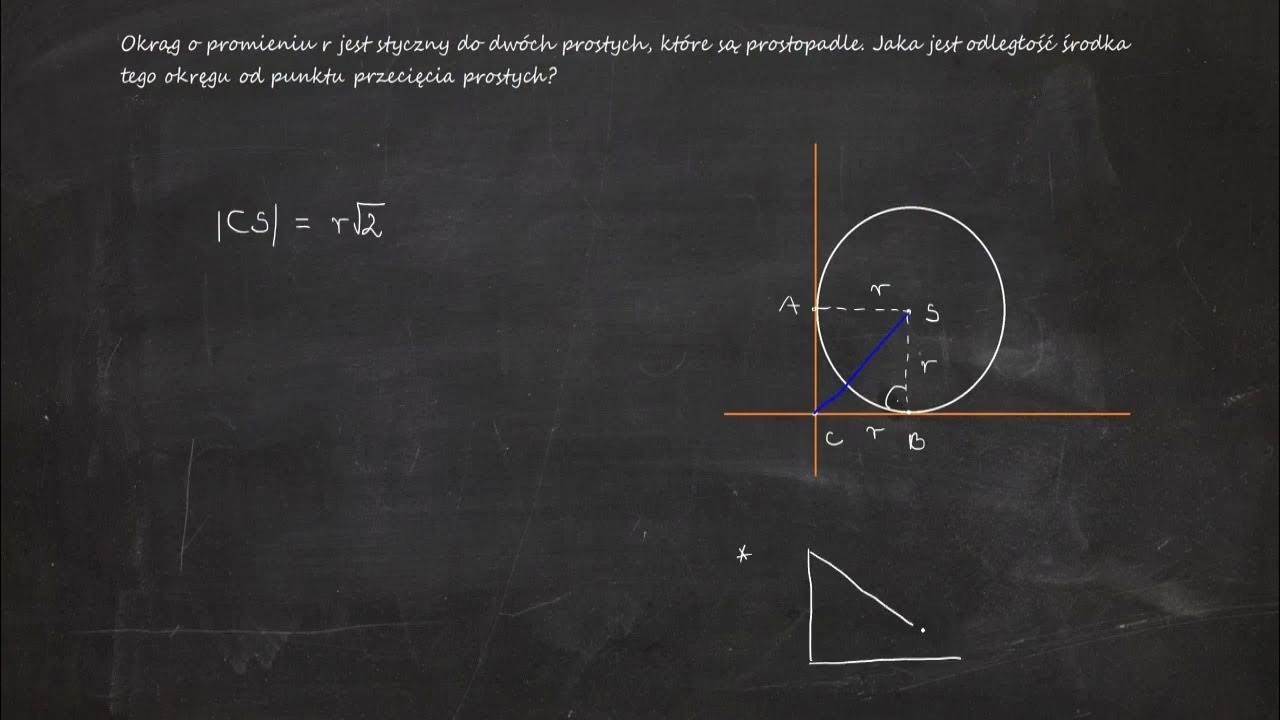 Okrąg o promieniu r jest styczny do dwóch prostych, które są prostopadłe. Jaka jest odległość środka
tego okręgu od punktu przecięcia prostych?
|CS| = r√2
r
A
S
r
C
r
B
*